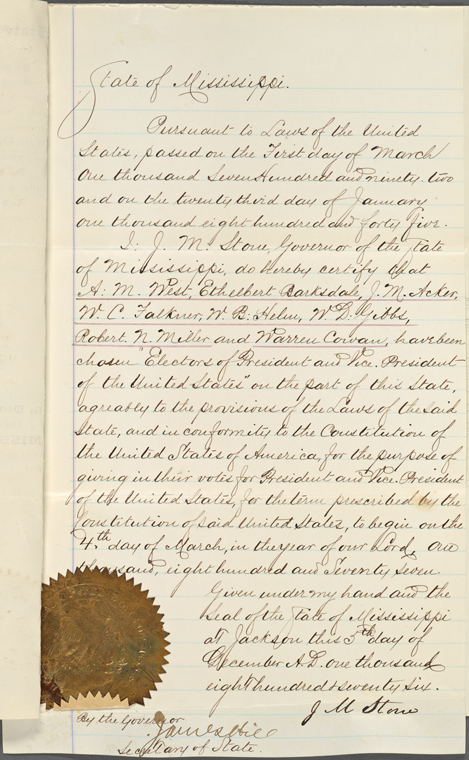 State of Mississippi.
Pursuant to Laws of the United
States, passed on the First day of March
One thousand Seven Hundred and ninety-two
and on the twenty third day of January
one thousand eight hundred and forty five.
I: J. M. Stone, Governor of the State
of Mississippi, do hereby certify that
A. M. West, Ethelbert Barksdale, J. M. Acker,
W. C. Falkner, W. B. Helm, W. D. Gibbs,
Robert. N. Miller and Warren Cowan, have been
chosen "Electors of President and Vice. President
of the United States" on the part of this State,
agreeably to the provisions of the Laws of the said
State, and in conformity to the Constitution of
the United States of America, for the purpose of
giving in their votes for President and Vice. President
of the United States, for the term prescribed by the
Constitution of said United States, to begin on the
4th day of March, in the year of our Lord, One
thousand, eight hundred and Seventy Seven
Given under my hand and the
Seal of the State of Mississippi
at Jackson this 5th day of
December A.D. one thousand
eight hundred & seventy six.
J M Stone
By the Governor
James Hill
Secretary of State.